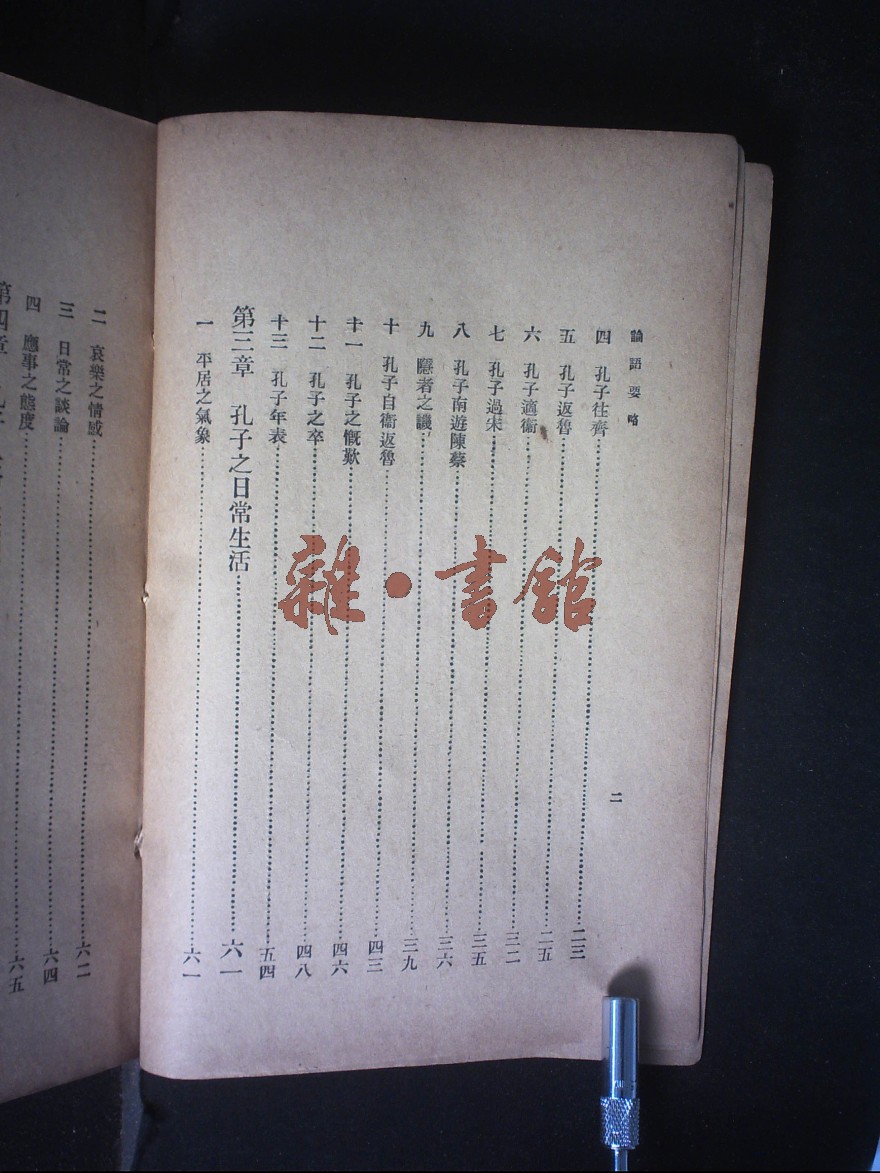 論語要略
二
四 孔子往齊……二三
五 孔子返魯……二五
六 孔子適衞……三二
七 孔子過宋……三五
八 孔子南遊陳蔡……三六
九 隱者之譏……三九
十 孔子自衞返魯……四三
十一 孔子之慨歎……四六
十二 孔子之卒……四八
十三 孔子年表……五四
第三章 孔子之日常生活……六一
一 平居之氣象……六一
二 哀樂之情感……六二
三 日常之談論……六四
四 應事之態度……六五
第四章
雜·書館